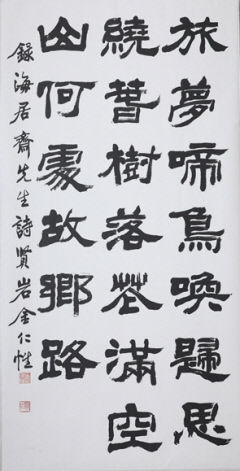 旅夢啼鳥喚歸思
繞春樹落花滿空
山何處故鄉路
錄海居齋先生詩賢岩金仁